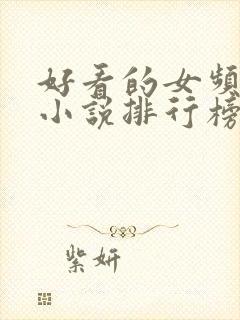 好看的女頻
小說排行榜
紫妍